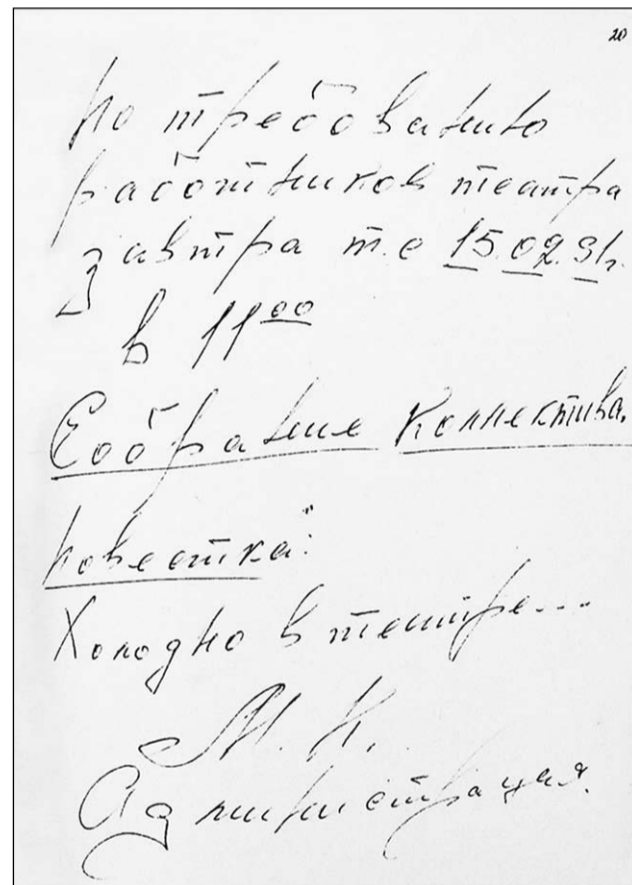 20
По требованию
работников театра
завтра т.е 15.02.91г.
в 11⁰⁰
Собрание коллектива.
Повестка:
Холодно в театре...
М. К.
Администрация.